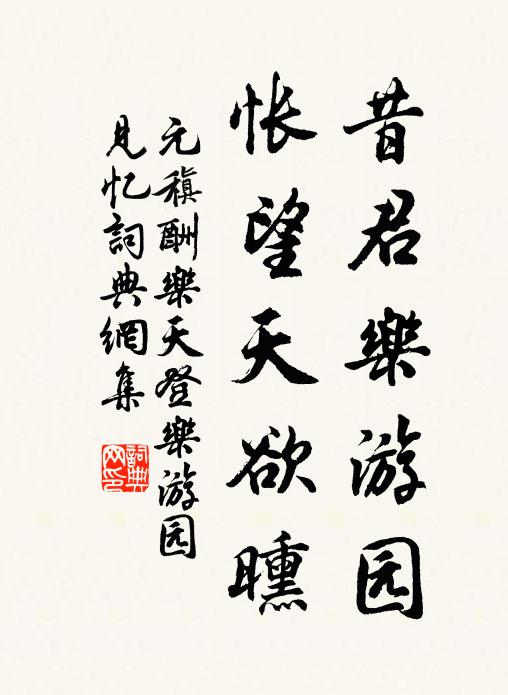 昔君樂游园
怅望天欲曛
元稹酬樂天登樂游园
見忆詞典網集
詞典
网印